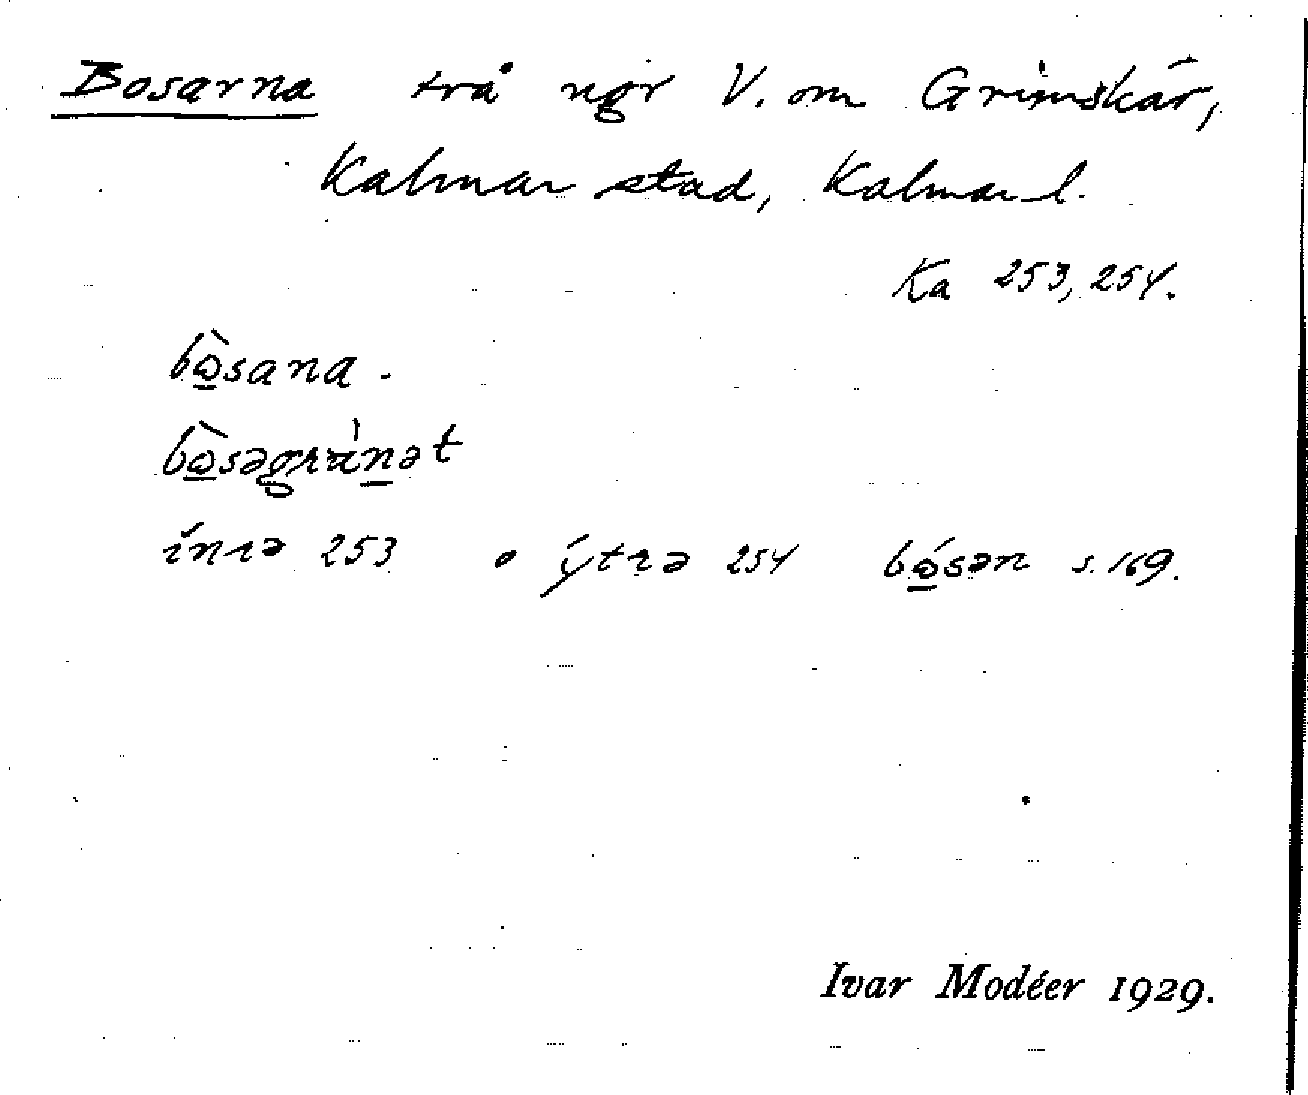 Bosarna två ngr V. om Grimskär,
Kalmar stad, Kalmar l.
Ka 253, 254.
bò̱sana.
bò̱səgrùn̠ət
ínrə 253 o ýtrə 254 bó̱sən s. 169.
Ivar Modéer 1929.